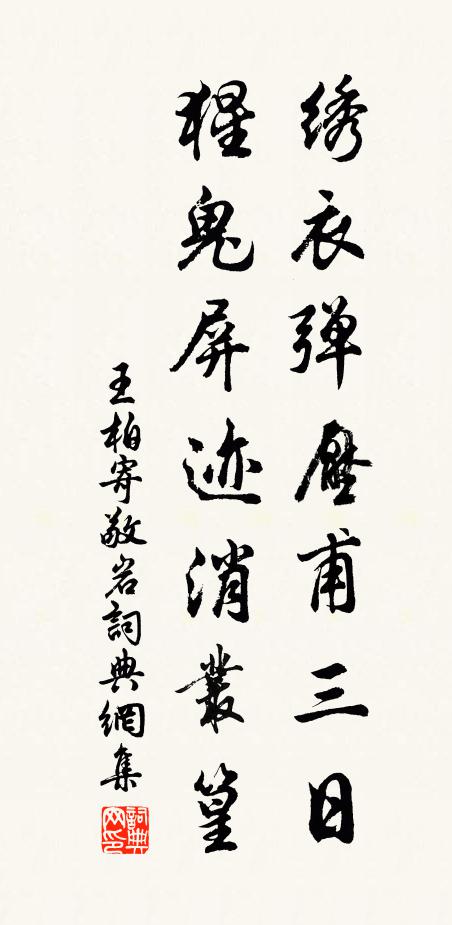 绣衣弹壓甫三日
猩鬼屏迹消叢篁
王柏寄敬岩詞典網集
詞典网印